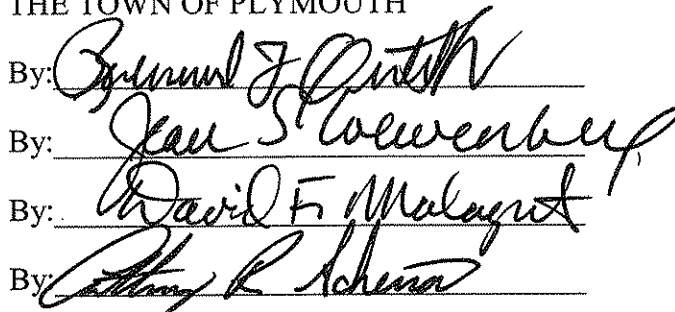 THE TOWN OF PLYMOUTH
By:
By: Jean S. Loewenberg
By: David F. Malaguti
By: Anthony R. Schena